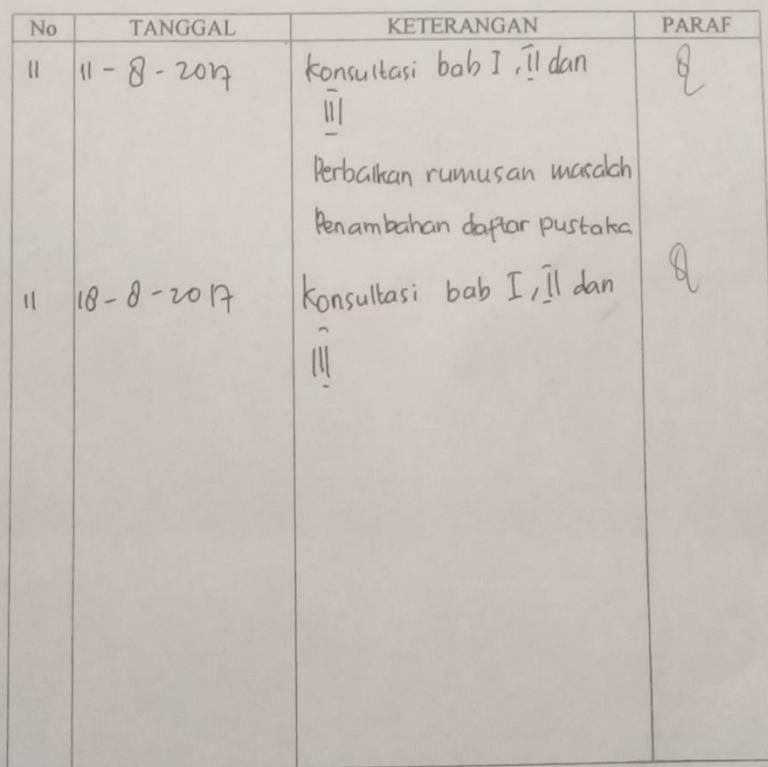 No TANGGAL KETERANGAN PARAF
11 11 - 8 - 2017 Konsultasi bab I, II dan
III
Perbaikan rumusan masalah
Penambahan daftar pustaka
11 18 - 8 - 2017 Konsultasi bab I, II dan
III